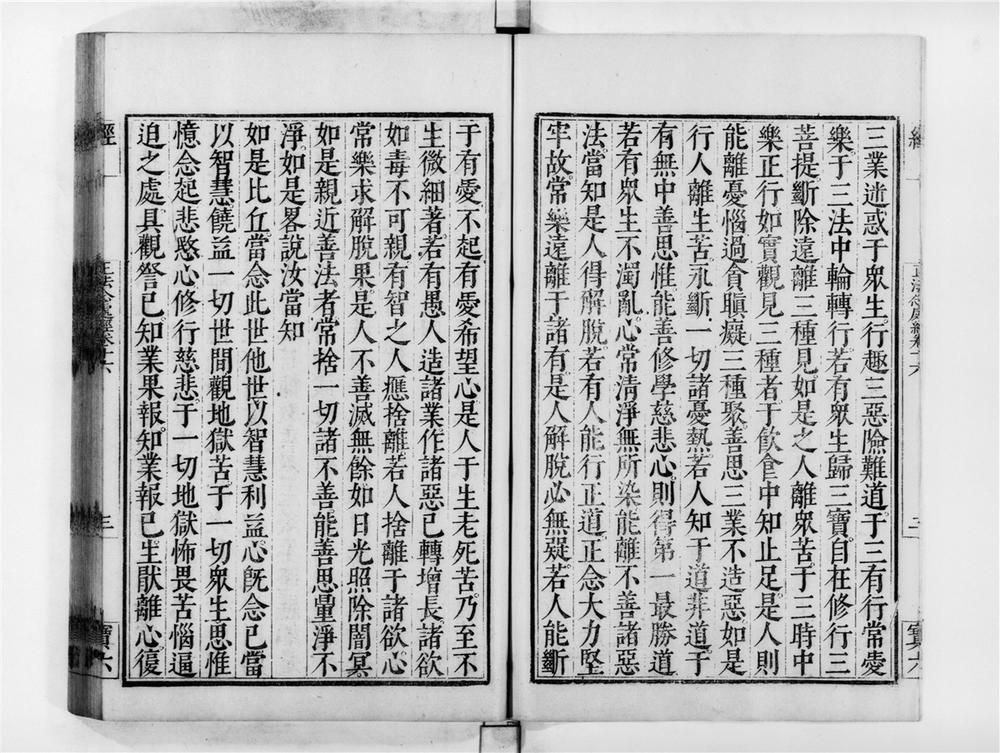 三業迷惑于衆生行趣三惡險難道于三有行常愛
樂于三法中輪轉行若有衆生歸三寶自在修行三
菩提斷除遠離三種見如是之人離衆苦于三時中
樂正行如實觀見三種者于飲食中知止足是人則
能離憂惱過貪瞋癡三種聚善思三業不造惡如是
行人離生苦永斷一切諸憂熱若人知于道非道于
有無中善思惟能善修學慈悲心則得第一最勝道
若有衆生不濁亂心常清淨無所染能離不善諸惡
法當知是人得解脫若有人能行正道正念大力堅
牢故常樂遠離于諸有是人解脫必無疑若人能斷
于有愛不起有愛希望心是人于生老死苦乃至不
生微細著若有愚人造諸業作諸惡已轉增長諸欲
如毒不可親有智之人應捨離若人捨離于諸欲心
常樂求解脫果是人不善滅無餘如日光照除闇冥
如是親近善法者常捨一切諸不善能善思量淨不
淨如是畧說汝當知
如是比丘當念此世他世以智慧利益心旣念已當
以智慧饒益一切世間觀地獄苦于一切衆生思惟
憶念起悲愍心修行慈悲于一切地獄怖畏苦惱逼
迫之處具觀咎已知業果報知業報已生猒離心復
經
正法念處經卷十六
三
寶六